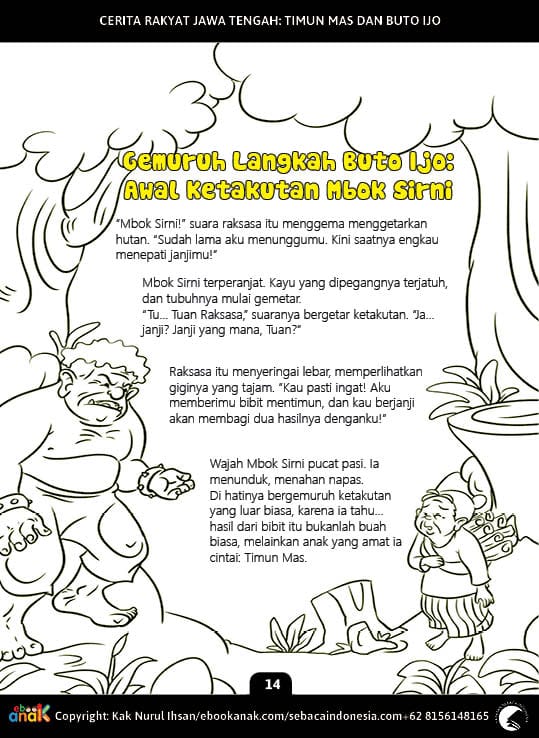 CERITA RAKYAT JAWA TENGAH: TIMUN MAS DAN BUTO IJO
Gemuruh Langkah Buto Ijo:
Awal Ketakutan Mbok Sirni
“Mbok Sirni!” suara raksasa itu menggema menggetarkan
hutan. “Sudah lama aku menunggumu. Kini saatnya engkau
menepati janjimu!”
Mbok Sirni terperanjat. Kayu yang dipegangnya terjatuh,
dan tubuhnya mulai gemetar.
“Tu... Tuan Raksasa,” suaranya bergetar ketakutan. “Ja...
janji? Janji yang mana, Tuan?”
Raksasa itu menyeringai lebar, memperlihatkan
giginya yang tajam. “Kau pasti ingat! Aku
memberimu bibit mentimun, dan kau berjanji
akan membagi dua hasilnya denganku!”
Wajah Mbok Sirni pucat pasi. Ia
menunduk, menahan napas.
Di hatinya bergemuruh ketakutan
yang luar biasa, karena ia tahu...
hasil dari bibit itu bukanlah buah
biasa, melainkan anak yang amat ia
cintai: Timun Mas.
14
ebook anak Copyright: Kak Nurul Ihsan/ebookanak.com/sebacaindonesia.com+62 8156148165